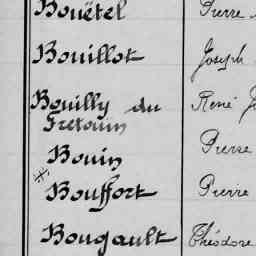 Bouëtel Pierre
Bouillot Joseph
Bouilly du René
Fretouin
Bouin Pierre
Bouffort Pierre
Bougault Théodore